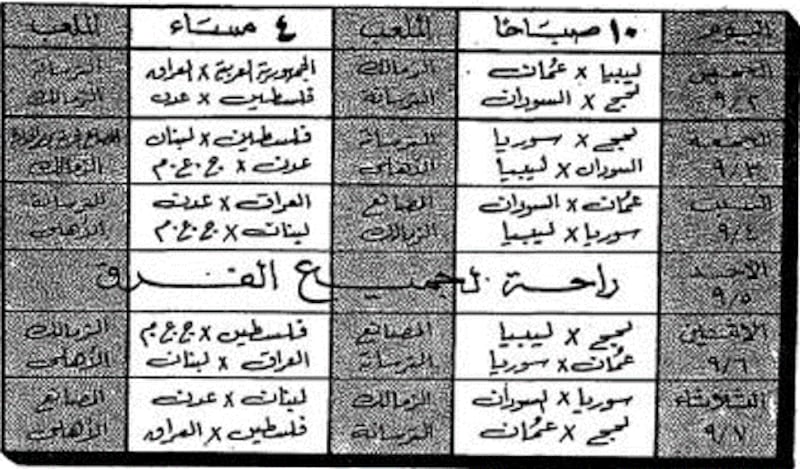 اليوم ١٠ صباحًا الملعب ٤ مساء الملعب
الخميس ليبيا x عمان الزمالك الجمهورية العربية x العراق الترسانة
٩/٢ لحج x السودان الترسانة فلسطين x عدن الزمالك
الجمعة لحج x سوريا الترسانة فلسطين x لبنان
٩/٣ السودان x ليبيا الأهلى عدن x ج.ع.م الزمالك
السبت عمان x السودان المصانع العراق x عدن الترسانة
٩/٤ سوريا x ليبيا الزمالك لبنان x ج.ع.م الأهلى
الأحد راحة لجميع الفرق
٩/٥
الاثنين لحج x ليبيا المصانع فلسطين x ج.ع.م الزمالك
٩/٦ عمان x سوريا الترسانة العراق x لبنان الأهلى
الثلاثاء سوريا x السودان الزمالك لبنان x عدن المصانع
٩/٧ لحج x عمان الترسانة فلسطين x العراق الأهلى